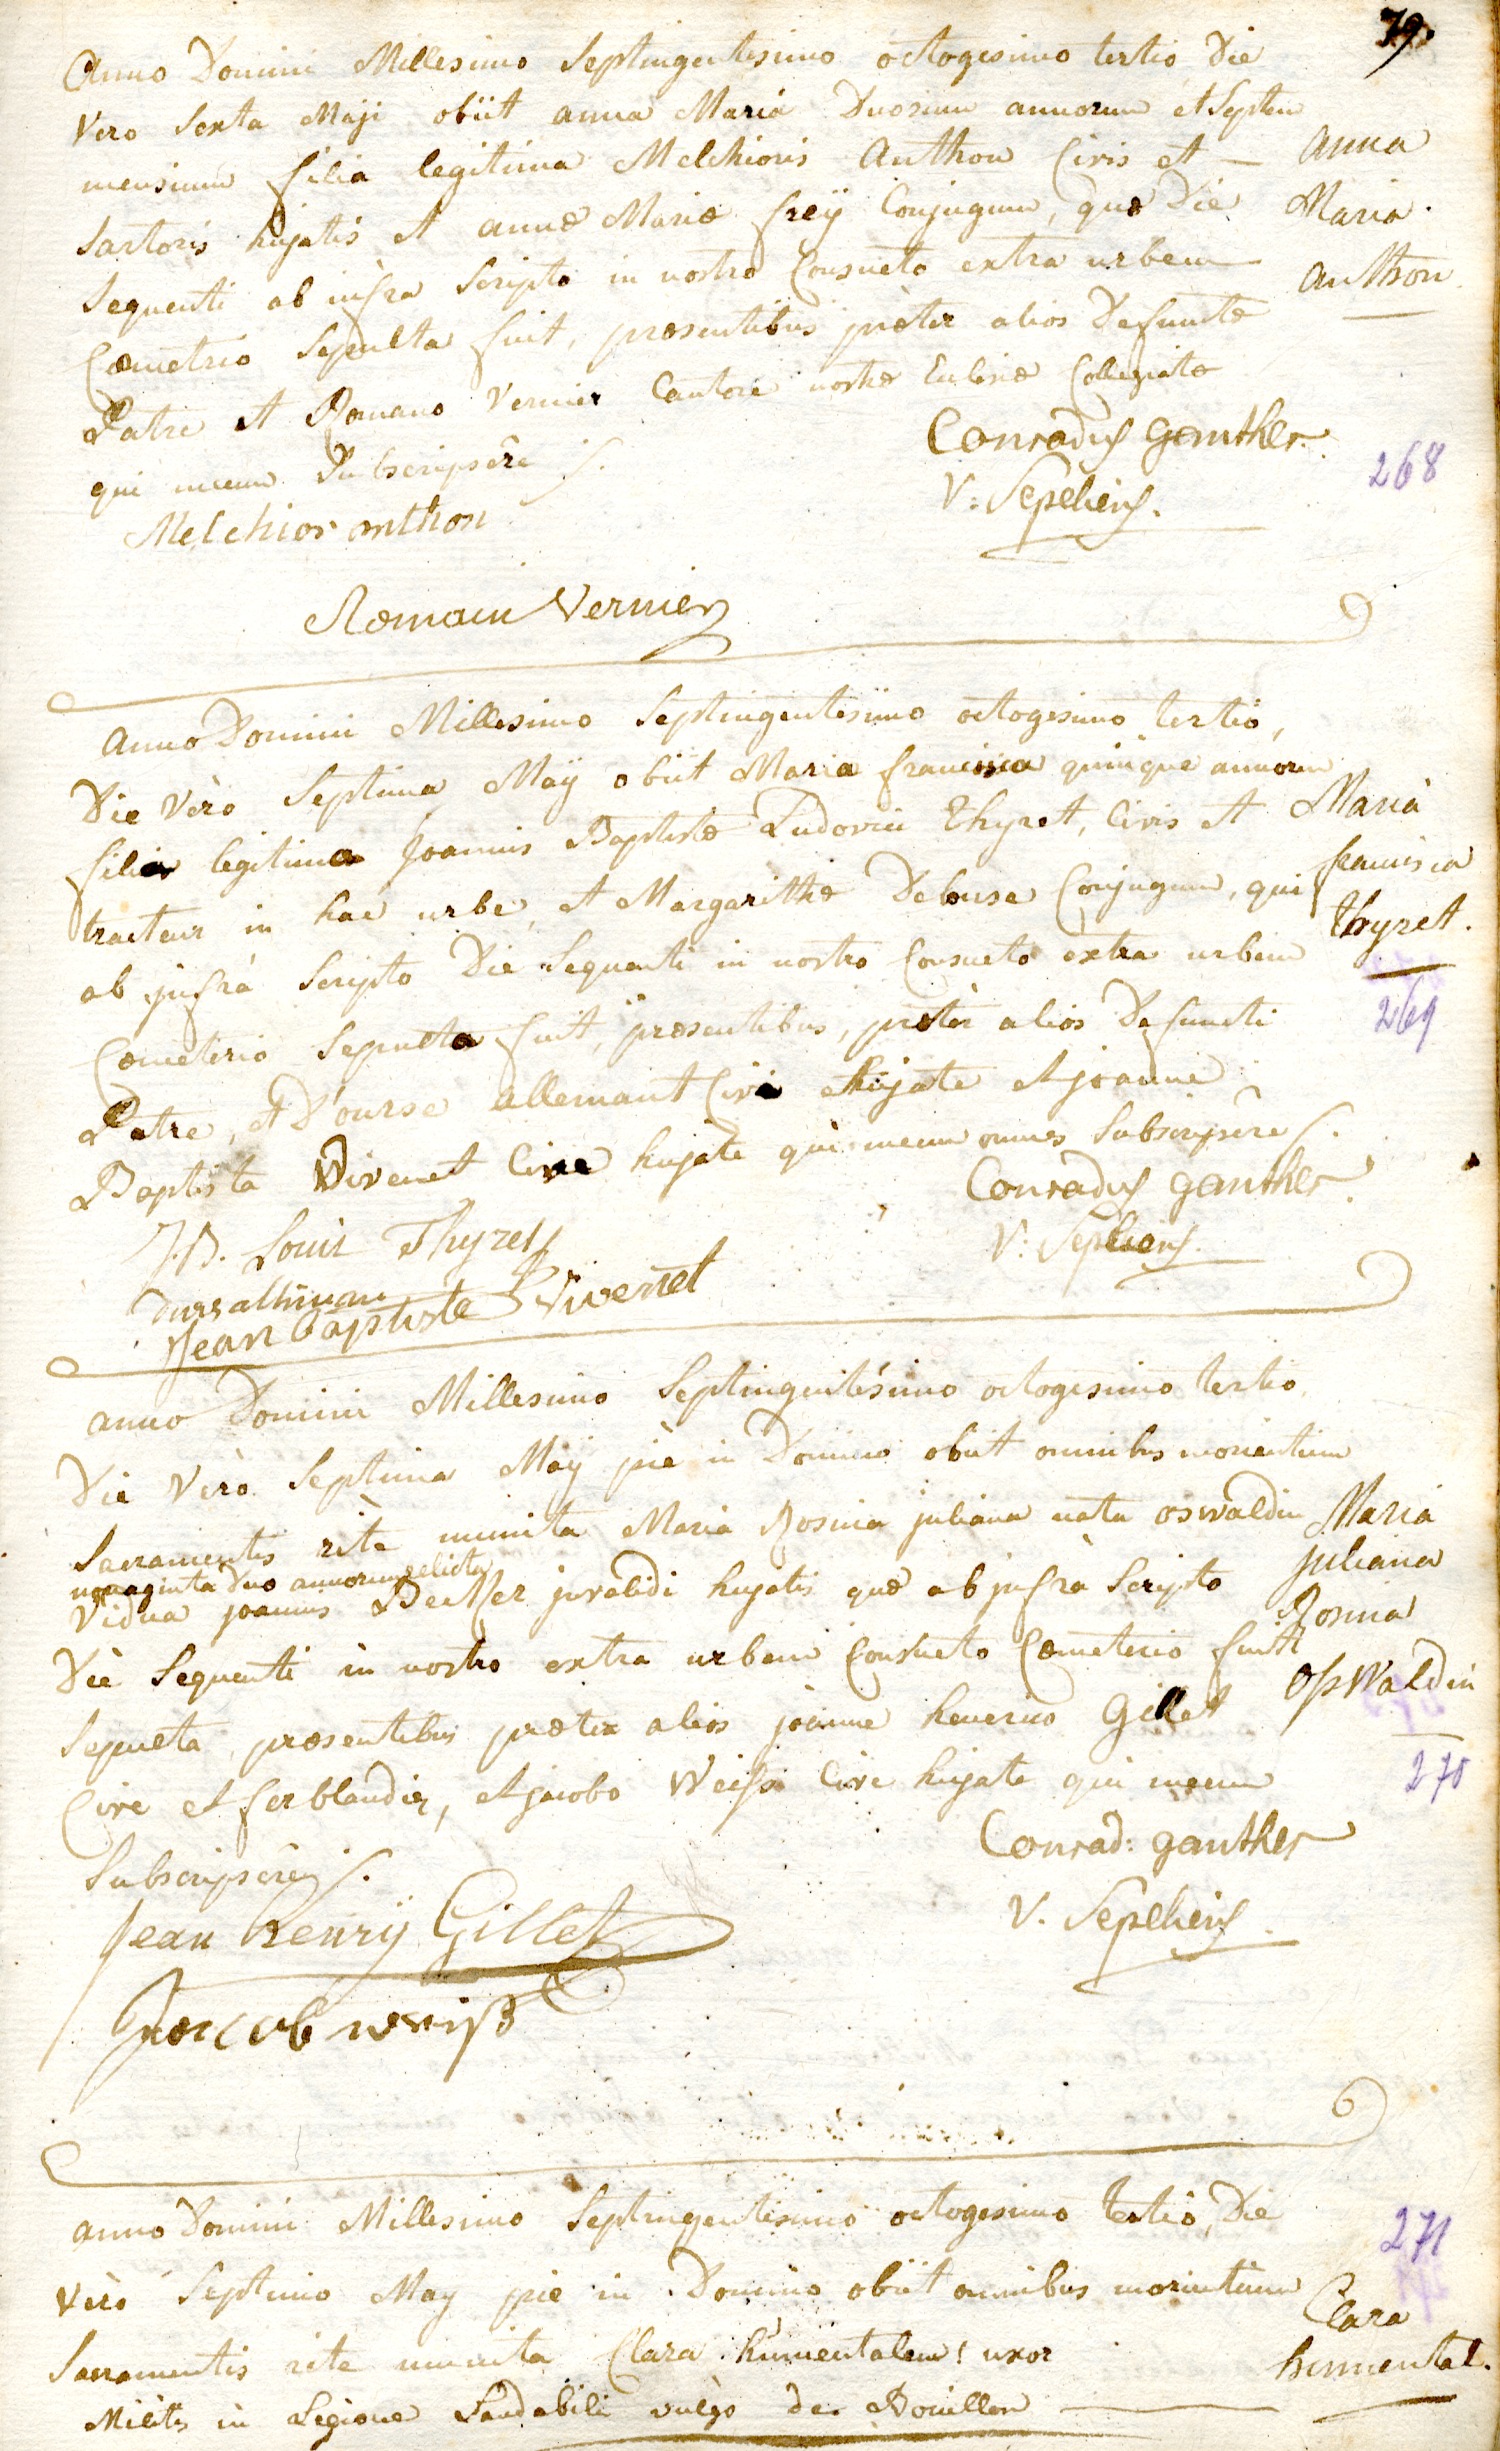 79.
Anno Domini Millesimo Septingentesimo octogesimo tertio Die
Vero Sexta Maji obiit anna Maria Duorum annorum et Septem
mensium filia legitima Melchioris Anthon Civis et —
Sartoris hujatis et annæ Mariæ freÿ Conjugum, quæ Die
Sequenti ab infra Scripto in nostro Consueto extra urbem
Cœmetrio Sepulta fuit, præsentibus præter alios Defunctæ
Patre et Romano Vernier Cantore nostræ Eclesiæ Collegiatæ
qui mecum Subscripsêre
Anna
Maria
Anthon
Conradus Ganther
V: Sepeliens.
268
Melchior anthon
Romain Vernier
Anno Domini Millesimo Septingentesimo octogesimo tertio,
Die Vero Septima Maÿ obiit Maria francisca quinque annorum
filia legitima Joannis Baptistæ Ludovici Thyret, Civis et
tracteur in hac urbe, et Margarithæ Delouse Conjugum, qui
ab jnfra Scripto Die Sequenti in nostro Consueto extra urbem
Cœmeterio Sepulta fuit, præsentibus, præter alios Defuncti
Patre, et D'ourse allemant Cive hujate et joanne
Baptista Vivenet Cive hujate qui mecum omnes Subscripsêre
Maria
francisca
thyret.
269
Conradus Ganther
V: Sepeliens.
J.B. Louis Thyret
Durs allman
Jean baptiste Vivenet
anno Domini Millesimo Septingentesimo octogesimo tertio
Die Vero Septima Maÿ piè in Domino obiit omnibus morientium
Sacramentis ritè munita Maria Rosina juliana nata oswaldin
nonaginta duo annorum relicta
Vidua joannis Becker jnvalidi hujatis quæ ab jnfra Scripto
Die Sequenti in nostro extra urbem Consueto Cœmeterio fuit
Sepulta præsentibus præter alios joanne henrico Gillet
Cive et ferblandier, et jacobo Weiss Cive hujate qui mecum
Subscripsêre
Maria
juliana
Rosina
Osswaldin
270
Conrad: Ganther
V. Sepeliens
Jean Henrÿ Gillet
Jacob weiß
anno Domini Millesimo Septingentesimo octogesimo tertio, Die
Vero Septimo May pie in Domino obiit omnibus morientium
Sacramentis rite munita Clara himentalem! uxor
Militis in Legione Laudabili vulgo de Bouillon
271
Clara
himental.